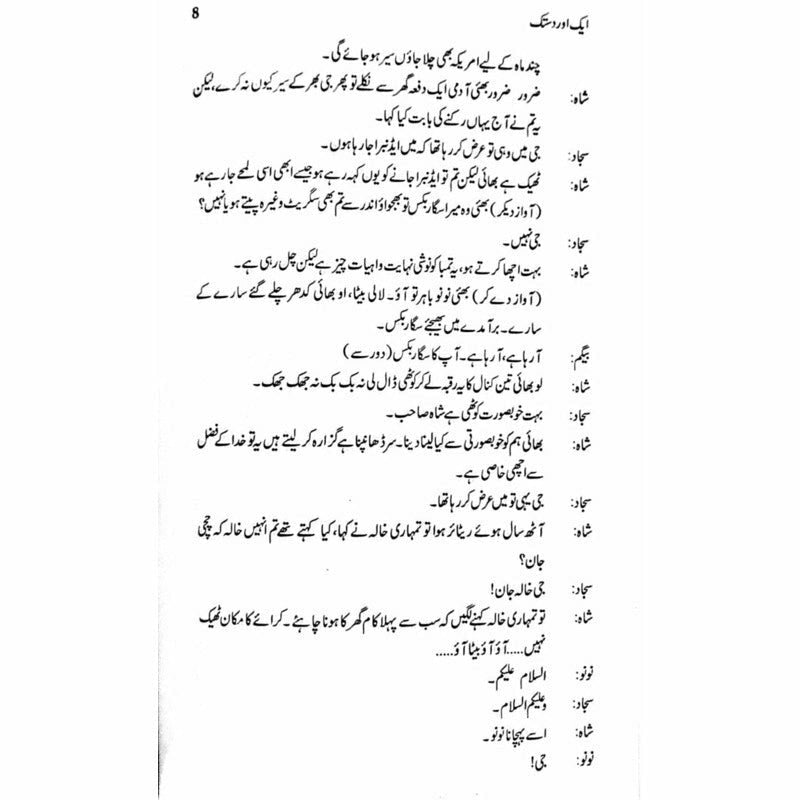 ایک اور دستک 8
چند ماہ کے لیے امریکہ بھی چلا جاؤں سیر ہو جائے گی۔
شاہ: ضرور ضرور بھئی آدمی ایک دفعہ گھر سے نکلے تو پھر جی بھر کے سیر کیوں نہ کرے، لیکن
یہ تم نے آج یہاں رکنے کی بابت کیا کہا۔
سجاد: جی میں وہی تو عرض کر رہا تھا کہ میں ایڈنبرا جا رہا ہوں۔
شاہ: ٹھیک ہے بھائی لیکن تم تو ایڈنبرا جانے کو یوں کہہ رہے ہو جیسے ابھی اسی لمحے جا رہے ہو
(آواز دیکر) بھئی وہ میرا سگار بکس تو بھجواؤ اندر سے تم بھی سگریٹ وغیرہ پیتے ہو یا نہیں؟
سجاد: جی نہیں۔
شاہ: بہت اچھا کرتے ہو، یہ تمباکو نوشی نہایت واہیات چیز ہے لیکن چل رہی ہے۔
(آواز دے کر) بھئی نونو باہر تو آؤ۔ لالی بیٹا، او بھائی کدھر چلے گئے سارے کے
سارے۔ برآمدے میں بھیجئے سگار بکس۔
بیگم: آ رہا ہے، آ رہا ہے۔ آپ کا سگار بکس (دور سے)
شاہ: لو بھائی تین کنال کا یہ رقبہ لے کر کوٹھی ڈال لی نہ بک بک نہ جھک جھک۔
سجاد: بہت خوبصورت کوٹھی ہے شاہ صاحب۔
شاہ: بھائی ہم کو خوبصورتی سے کیا لینا دینا۔ سر ڈھانپنا ہے گزارہ کر لیتے ہیں یہ تو خدا کے فضل
سے اچھی خاصی ہے۔
سجاد: جی یہی تو میں عرض کر رہا تھا۔
شاہ: آٹھ سال ہوئے ریٹائر ہوا تو تمہاری خالہ نے کہا، کیا کہتے تھے تم انہیں خالہ کہ چچی
جان؟
سجاد: جی خالہ جان!
شاہ: تو تمہاری خالہ کہنے لگیں کہ سب سے پہلا کام گھر کا ہونا چاہئے۔ کرائے کا مکان ٹھیک
نہیں.....آؤ آؤ بیٹا آؤ.....
نونو: السلام علیکم۔
سجاد: وعلیکم السلام۔
شاہ: اسے پہچانا نونو۔
نونو: جی!